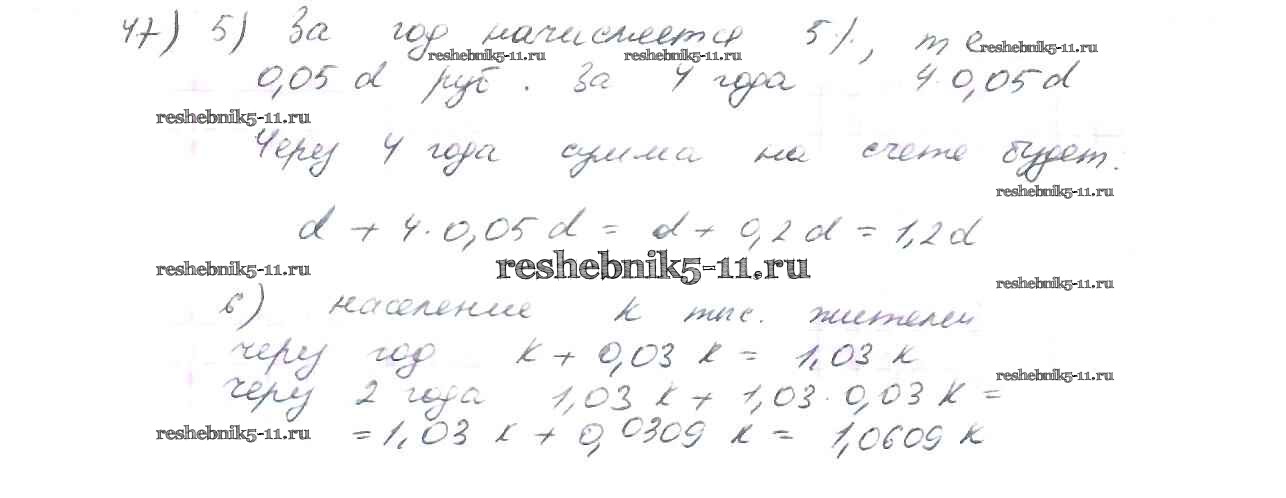 47) 5) За год начисляется 5%, т е
reshebnik5-11.ru reshebnik5-11.ru reshebnik5-11.ru
0,05 d руб. За 4 года 4·0,05 d
reshebnik5-11.ru
Через 4 года сумма на счете будет:
reshebnik5-11.ru
d + 4·0,05 d = d + 0,2 d = 1,2 d
reshebnik5-11.ru reshebnik5-11.ru
reshebnik5-11.ru
6) население к тыс. жителей
через год к + 0,03 к = 1,03 к
reshebnik5-11.ru
через 2 года 1,03 к + 1,03·0,03 к =
reshebnik5-11.ru = 1,03 к + 0,0309 к = 1,0609 к